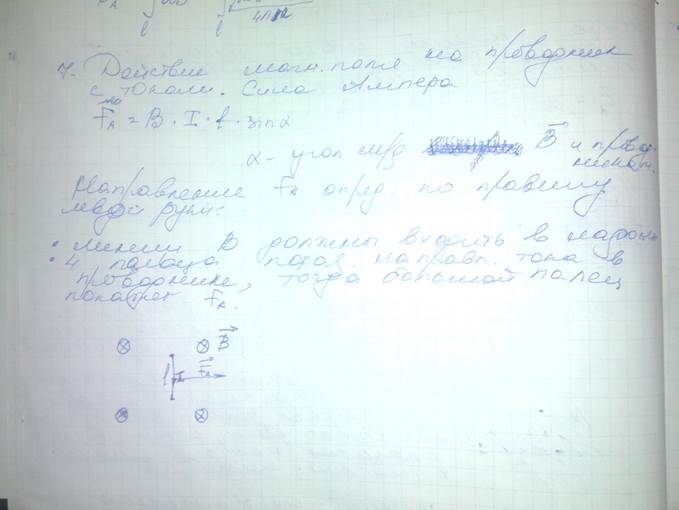 7. Действие магн. поля на проводник
с токами. Сила Ампера
F_A = B · I · l · sinα
α - угол м/д B⃗ и провод-
ником.
Направление F_A опред. по правилу
левой руки:
• линии B должны входить в ладонь
• 4 пальца показ. направл. тока в
проводнике, тогда большой палец
покажет F_A.
⊗ ⊗ B⃗
I F⃗_A
⊗ ⊗